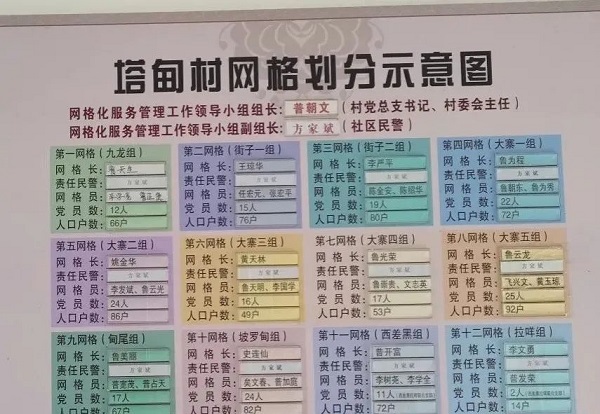 塔甸村网格划分示意图
网格化服务管理工作领导小组组长: 普朝文 (村党总支书记、村委会主任)
网格化服务管理工作领导小组副组长: 方家斌 (社区民警)
第一网格(九龙组)
网格长:
责任民警: 方家斌
网格员:
党员数: 12人
人口户数: 66户
第二网格(街子一组)
网格长: 王琼华
责任民警: 方家斌
网格员: 任宏元、张宏平
党员数: 15人
人口户数: 76户
第三网格(街子二组)
网格长: 李严平
责任民警: 方家斌
网格员: 陈金安、陈绍华
党员数: 19人
人口户数: 80户
第四网格(大寨一组)
网格长: 鲁为程
责任民警: 方家斌
网格员: 鲁朝东、鲁为秀
党员数: 22人
人口户数: 72户
第五网格(大寨二组)
网格长: 姚金华
责任民警: 方家斌
网格员: 李发斌、鲁云光
党员数: 24人
人口户数: 86户
第六网格(大寨三组)
网格长: 黄天林
责任民警: 方家斌
网格员: 鲁天明、李国学
党员数: 16人
人口户数: 49户
第七网格(大寨四组)
网格长: 鲁光荣
责任民警: 方家斌
网格员: 鲁崇贵、文志英
党员数: 17人
人口户数: 53户
第八网格(大寨五组)
网格长: 鲁云龙
责任民警: 方家斌
网格员: 飞兴文、黄玉琼
党员数: 25人
人口户数: 92户
第九网格(甸尾组)
网格长: 鲁美丽
责任民警: 方家斌
网格员: 普宽茂、普占天
党员数: 17人
人口户数: 67户
第十网格(坡罗甸组)
网格长: 史连仙
责任民警: 方家斌
网格员: 矣文春、普加庭
党员数: 24人
人口户数: 82户
第十一网格(西差黑组)
网格长: 普开富
责任民警: 方家斌
网格员: 李树尧、李学全
党员数: 11人
人口户数: 72户
第十二网格(拉咩组)
网格长: 李文勇
责任民警: 方家斌
网格员: 普发荣
党员数: 2人
人口户数: 14户